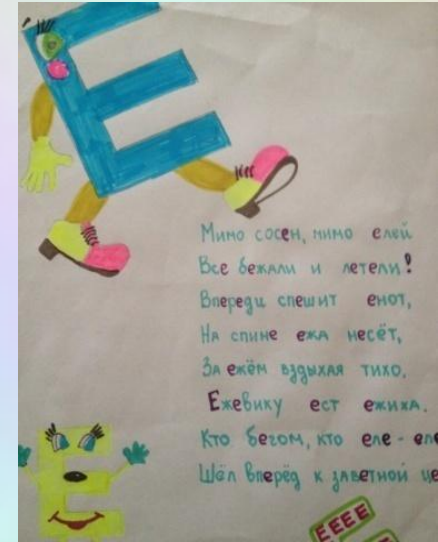 Е
Мимо сосен, мимо елей
Все бежали и летели!
Впереди спешит енот,
На спине ежа несёт,
За ежём вздыхая тихо,
Ежевику ест ежиха.
Кто бегом, кто еле - еле
Шёл вперёд к заветной
Е
ЕЕЕЕ